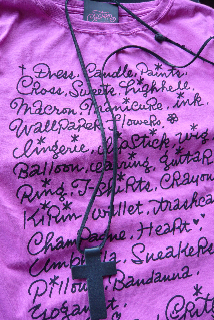 Dress. Candle. Paints.
Cross. Sweets. highheel.
Macron. Manicure. ink.
Wallpaper. Flowers.
lingerie. lipstick. wig
Balloon. earring. guitar
Ring. T-shirts. Crayon
Kirin. wallet. trashca
Champagne. Heart
Umbrella. Sneakers
Pillow. Bandanna.